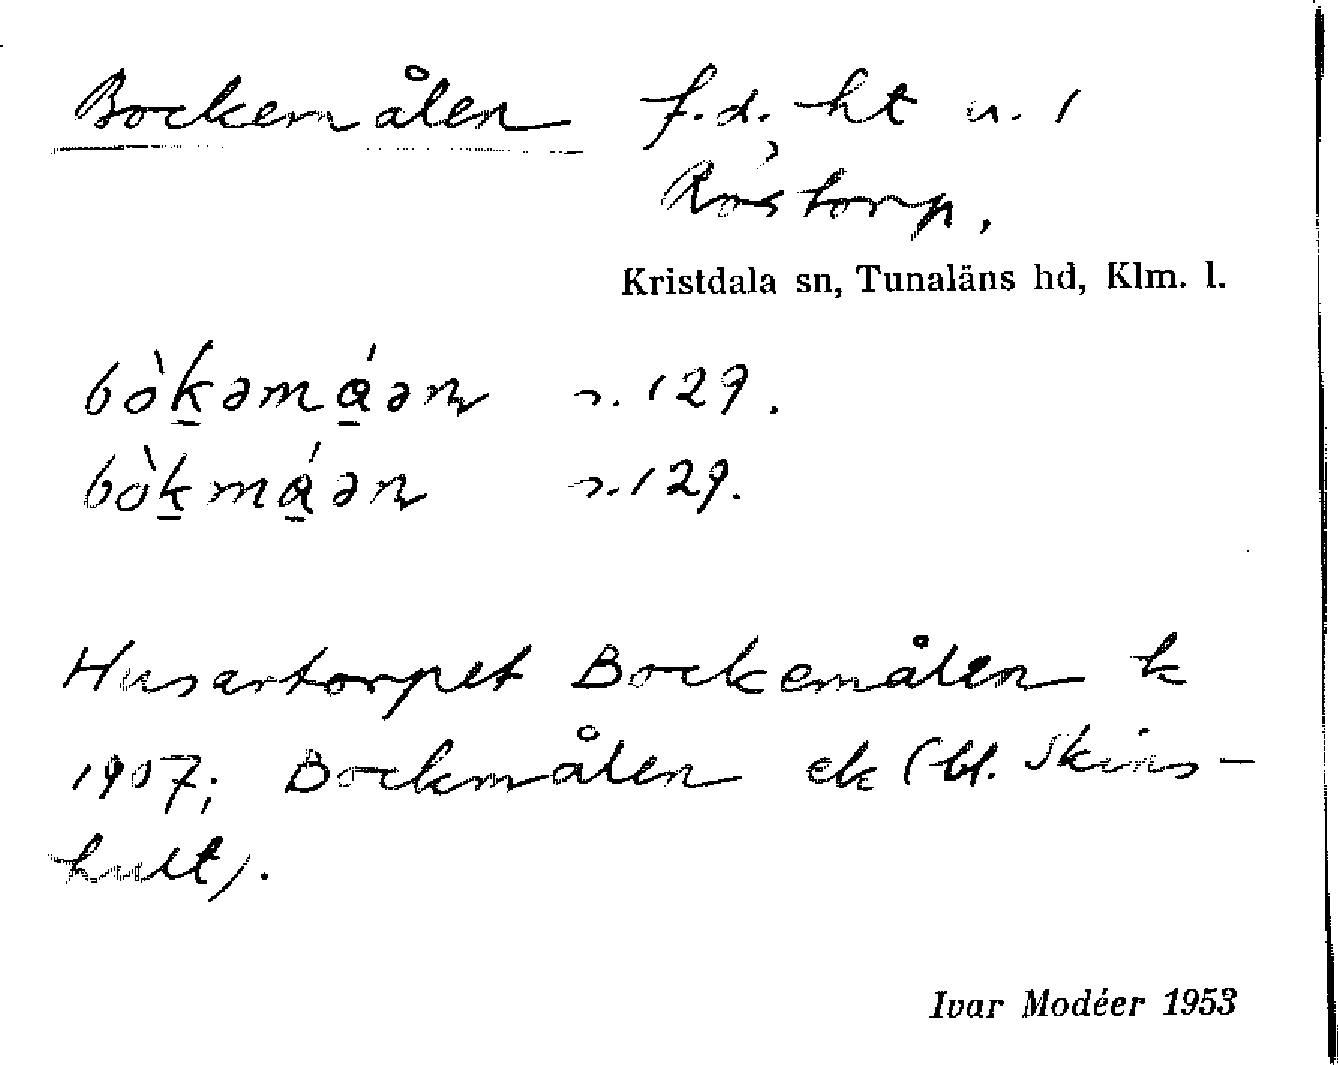 Bockemålen f.d. ht u. 1
Röstorp.
Kristdala sn, Tunaläns hd, Klm. l.
bòk̲əmá̲ən s. 129.
bòk̲má̲ən s. 129.
Husartorpet Bockemålen k
1907; Bockmålen ek (bl. Skins-
hult).
Ivar Modéer 1953